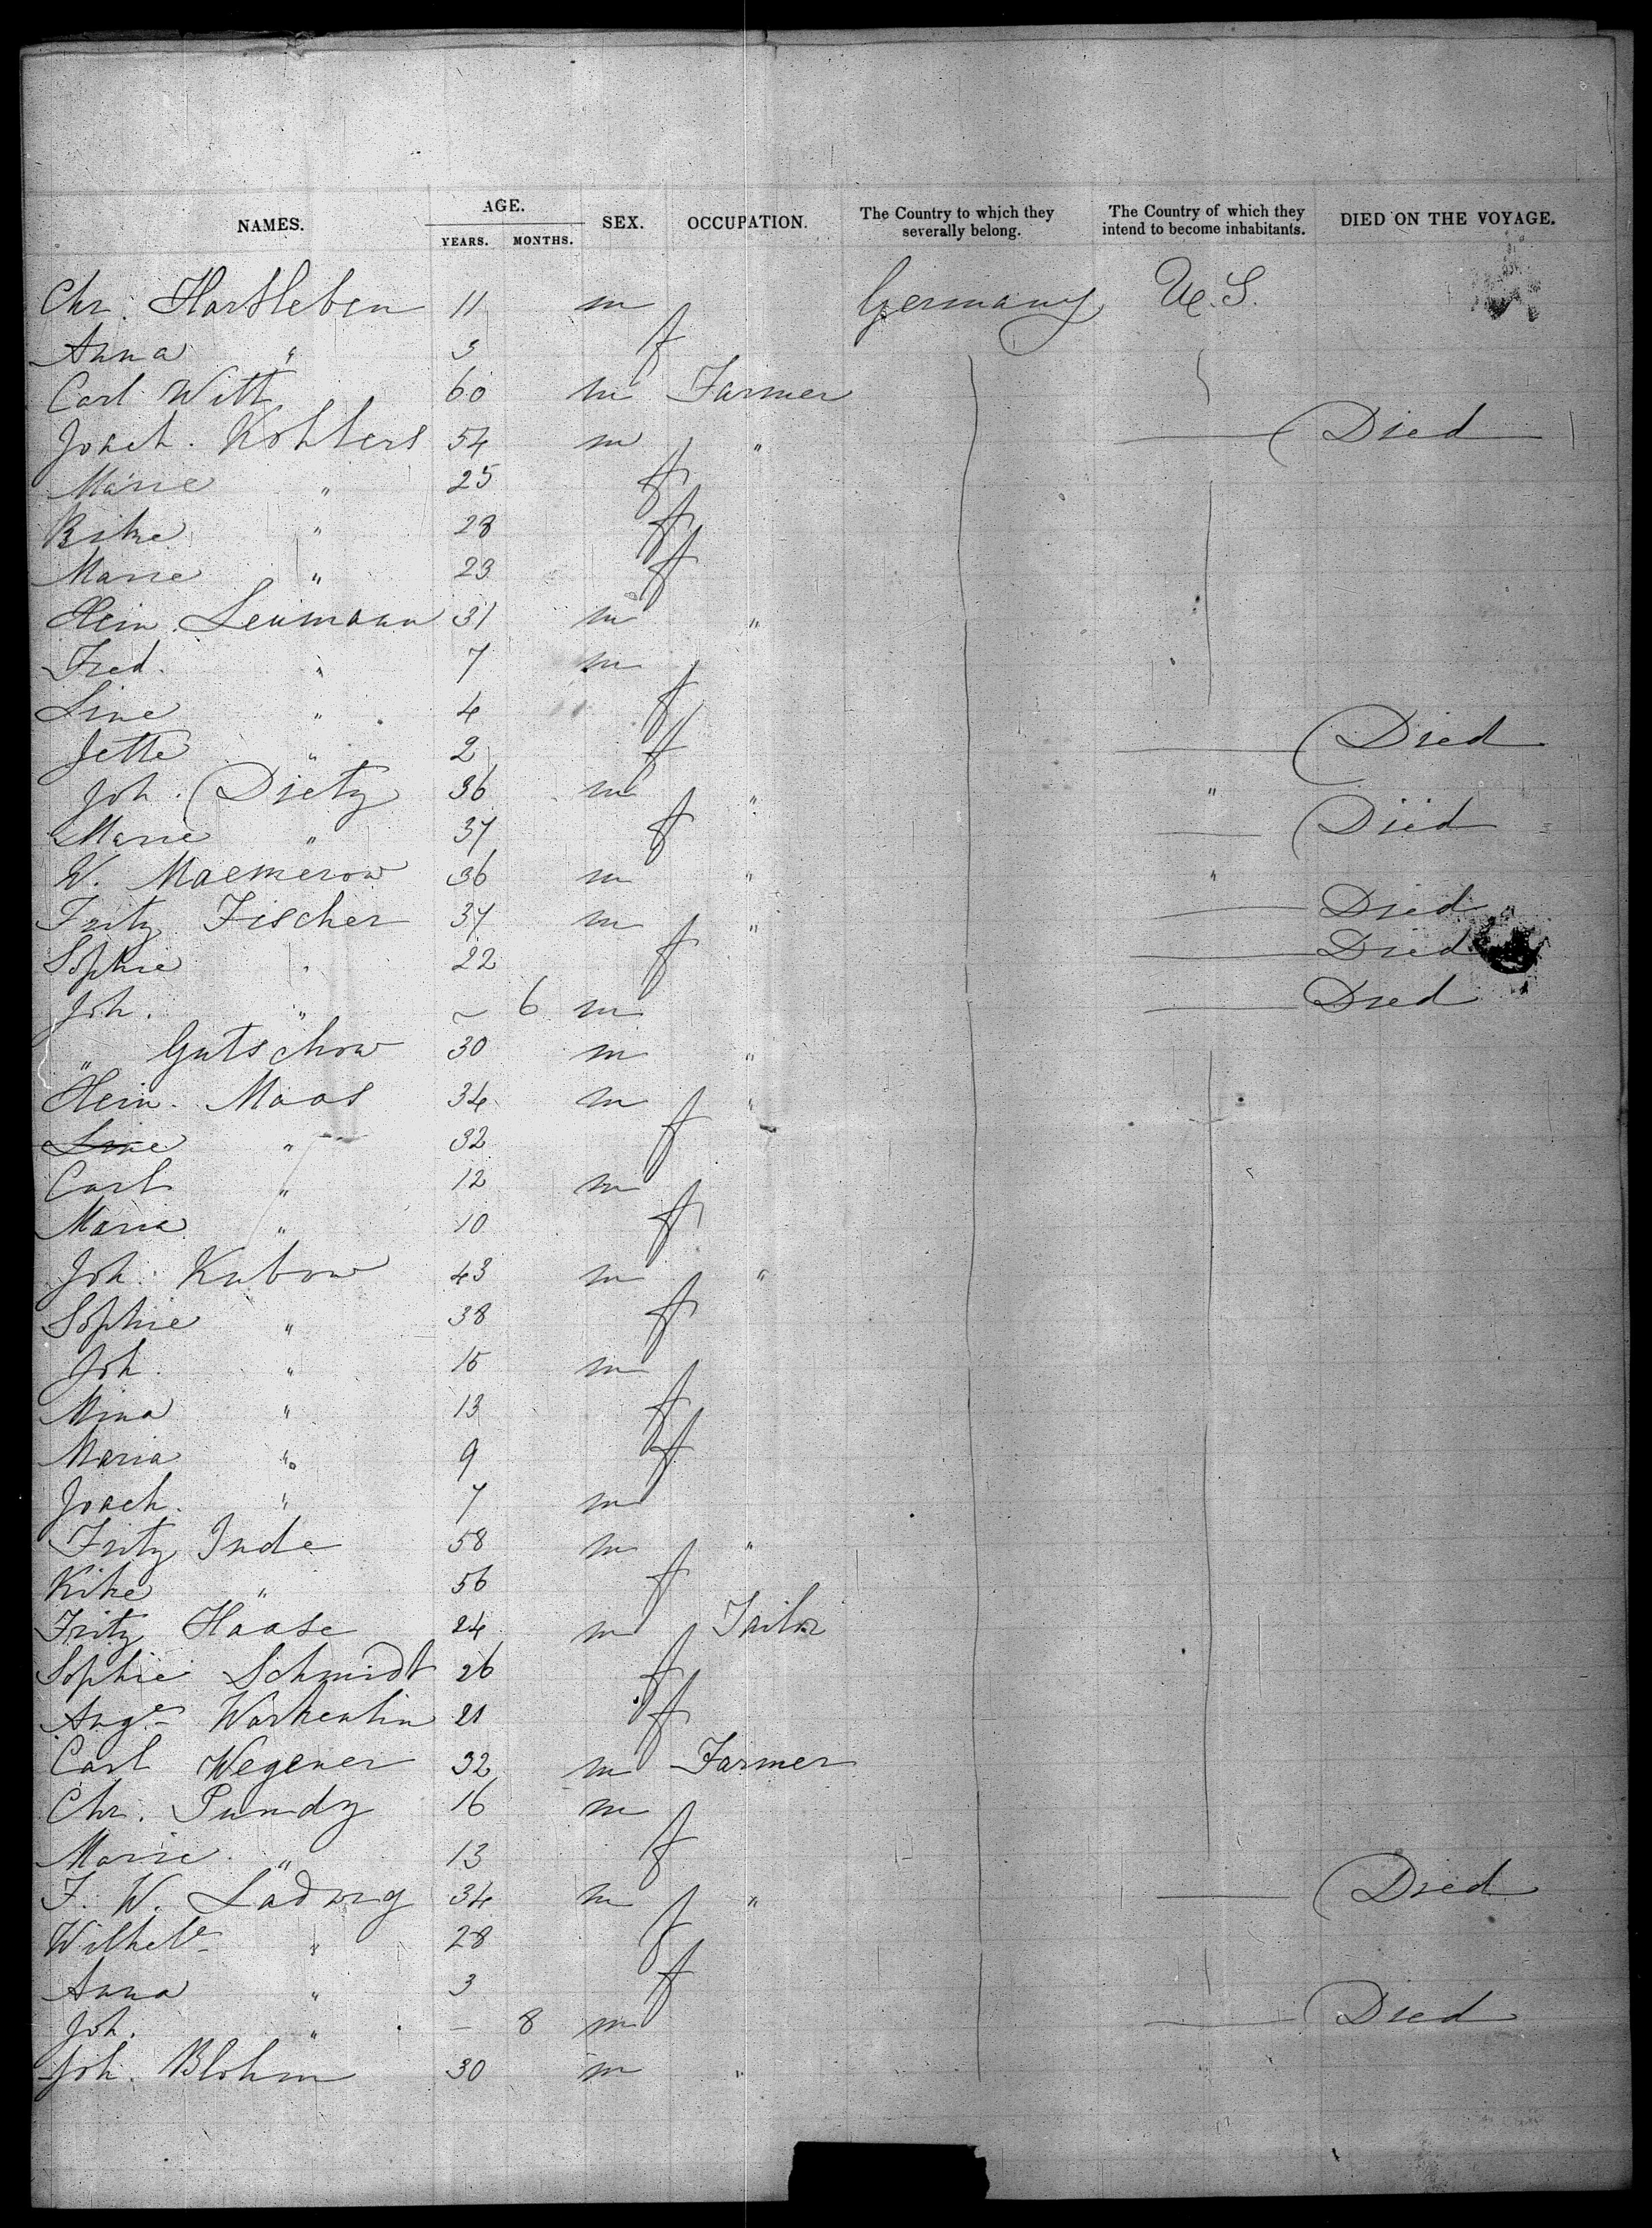 NAMES. AGE. YEARS. MONTHS. SEX. OCCUPATION. The Country to which they severally belong. The Country of which they intend to become inhabitants. DIED ON THE VOYAGE.
Chr. Hartleben 11 m Germany U.S.
Anna " 3 f
Carl Witt 60 m Farmer
Joach. Kohlers 54 m " Died
Marie " 25 f
Rike " 28 f
Marie " 23 f
Hein. Leumann 31 m "
Fred. " 7 m
Line " 4 f
Jette " 2 f Died
Joh. Dietz 36 m " "
Marie " 37 f Died
W. Maemerow 36 m " "
Fritz Fischer 37 m " Died
Sophie " 22 f Died
Joh. " ~ 6 m Died
" Gutschow 30 m "
Hein. Maas 34 m "
Line " 32 f
Carl " 12 m
Maria " 10 f
Joh. Kubow 43 m "
Sophie " 38 f
Joh. " 15 m
Mina " 13 f
Maria " 9 f
Joach. " 7 m
Fritz Inde 58 m "
Rike " 56 f
Fritz Haase 24 m Tailor
Sophie Schmidt 26 f
Auge Warkentin 21 f
Carl Wegener 32 m Farmer
Chr. Pundz 16 m
Marie " 13 f
F. W. Ladwig 34 m " Died
Wilhele " 28 f
Anna " 3 f
Joh. " — 8 m Died
Joh. Blohm 30 m "